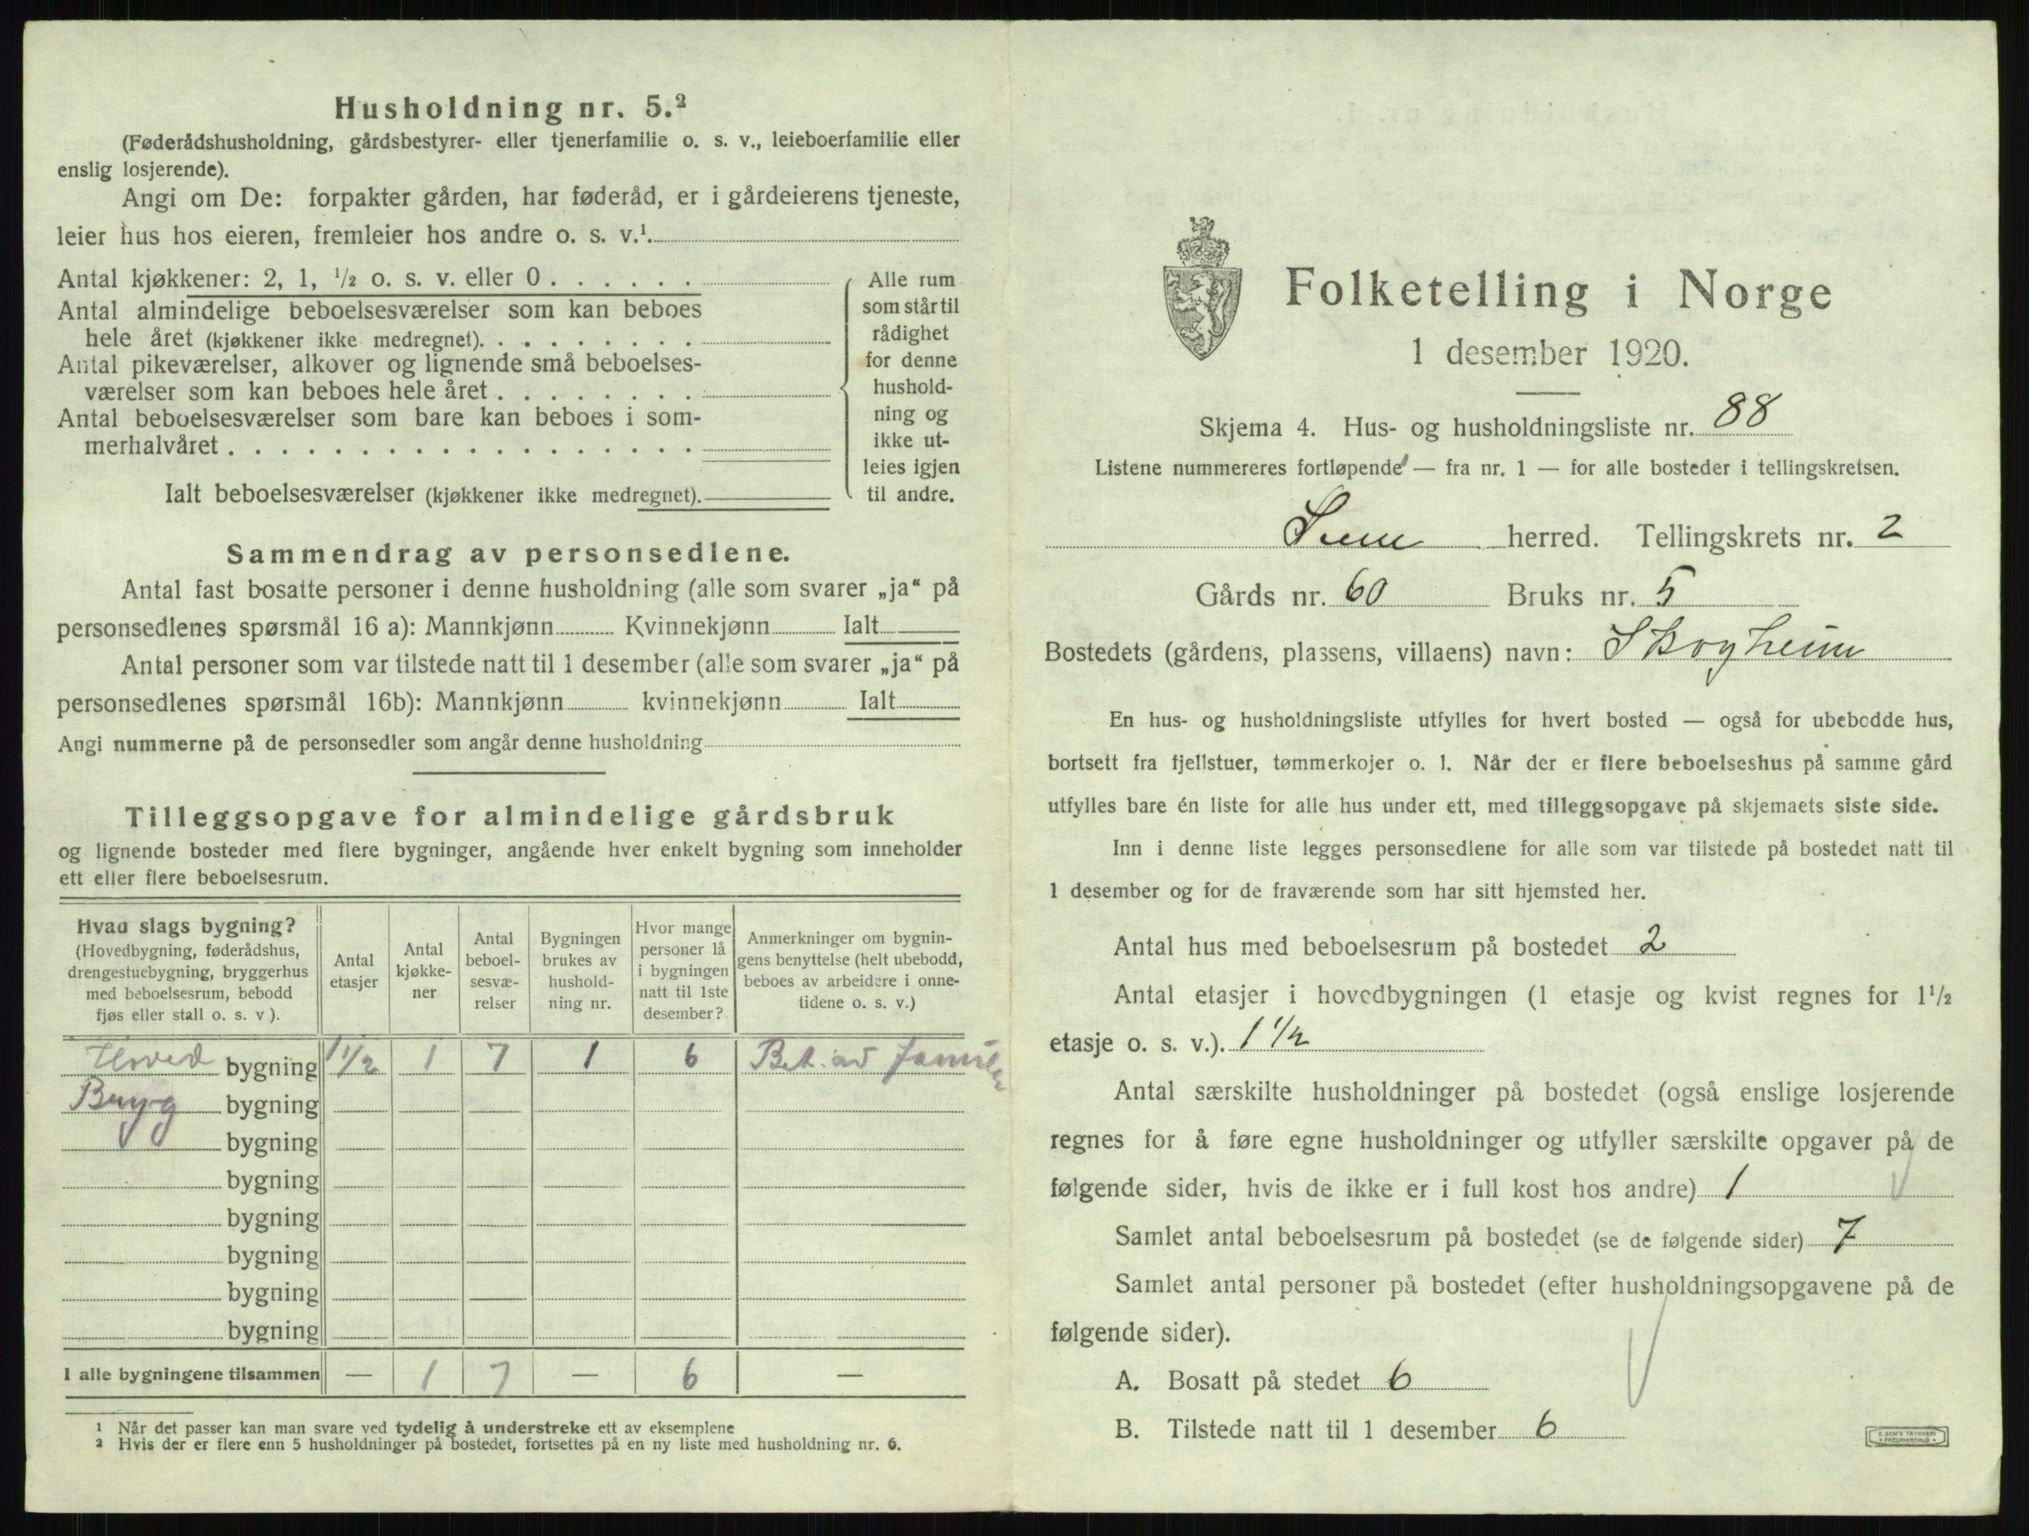 Husholdning nr. 5.²
(Føderådshusholdning, gårdsbestyrer- eller tjenerfamilie o. s. v., leieboerfamilie eller
enslig losjerende).
Angi om De: forpakter gården, har føderåd, er i gårdeierens tjeneste,
leier hus hos eieren, fremleier hos andre o. s. v.¹.
Antal kjøkkener: 2, 1, ½ o. s. v. eller 0 . . . . . .
Antal almindelige beboelsesværelser som kan beboes
hele året (kjøkkener ikke medregnet). . . . . . . . .
Antal pikeværelser, alkover og lignende små beboelses-
værelser som kan beboes hele året . . . . . . . .
Antal beboelsesværelser som bare kan beboes i som-
merhalvåret . . . . . . . . . . . . . . . . . .
Ialt beboelsesværelser (kjøkkener ikke medregnet).
Alle rum
som står til
rådighet
for denne
hushold-
ning og
ikke ut-
leies igjen
til andre.
Sammendrag av personsedlene.
Antal fast bosatte personer i denne husholdning (alle som svarer „ja“ på
personsedlenes spørsmål 16 a): Mannkjønn Kvinnekjønn Ialt
Antal personer som var tilstede natt til 1 desember (alle som svarer „ja“ på
personsedlenes spørsmål 16b): Mannkjønn kvinnekjønn Ialt
Angi nummerne på de personsedler som angår denne husholdning
Tilleggsopgave for almindelige gårdsbruk
og lignende bosteder med flere bygninger, angående hver enkelt bygning som inneholder
ett eller flere beboelsesrum.
Hvad slags bygning?
(Hovedbygning, føderådshus,
drengestuebygning, bryggerhus
med beboelsesrum, bebodd
fjøs eller stall o. s. v ).
Antal
etasjer
Antal
kjøkke-
ner
Antal
beboel-
sesvæ-
relser
Bygningen
brukes av
hushold-
ning nr.
Hvor mange
personer lå
i bygningen
natt til 1ste
desember?
Anmerkninger om bygnin-
gens benyttelse (helt ubebodd,
beboes av arbeidere i onne-
tidene o. s. v.)
Hoved bygning 1½ 1 7 1 6 Bet. av familie
Bryg bygning
bygning
bygning
bygning
bygning
bygning
bygning
I alle bygningene tilsammen — 1 7 — 6 —
¹ Når det passer kan man svare ved tydelig å understreke ett av eksemplene
² Hvis der er flere enn 5 husholdninger på bostedet, fortsettes på en ny liste med husholdning nr. 6.
Folketelling i Norge
1 desember 1920.
Skjema 4. Hus- og husholdningsliste nr. 88
Listene nummereres fortløpende — fra nr. 1 — for alle bosteder i tellingskretsen.
Sem herred. Tellingskrets nr. 2
Gårds nr. 60 Bruks nr. 5
Bostedets (gårdens, plassens, villaens) navn: Skogheim
En hus- og husholdningsliste utfylles for hvert bosted — også for ubebodde hus,
bortsett fra fjellstuer, tømmerkojer o. l. Når der er flere beboelseshus på samme gård
utfylles bare én liste for alle hus under ett, med tilleggsopgave på skjemaets siste side.
Inn i denne liste legges personsedlene for alle som var tilstede på bostedet natt til
1 desember og for de fraværende som har sitt hjemsted her.
Antal hus med beboelsesrum på bostedet 2
Antal etasjer i hovedbygningen (1 etasje og kvist regnes for 1½
etasje o. s. v.). 1½
Antal særskilte husholdninger på bostedet (også enslige losjerende
regnes for å føre egne husholdninger og utfyller særskilte opgaver på de
følgende sider, hvis de ikke er i full kost hos andre) 1
Samlet antal beboelsesrum på bostedet (se de følgende sider) 7
Samlet antal personer på bostedet (efter husholdningsopgavene på de
følgende sider).
A. Bosatt på stedet 6
B. Tilstede natt til 1 desember 6